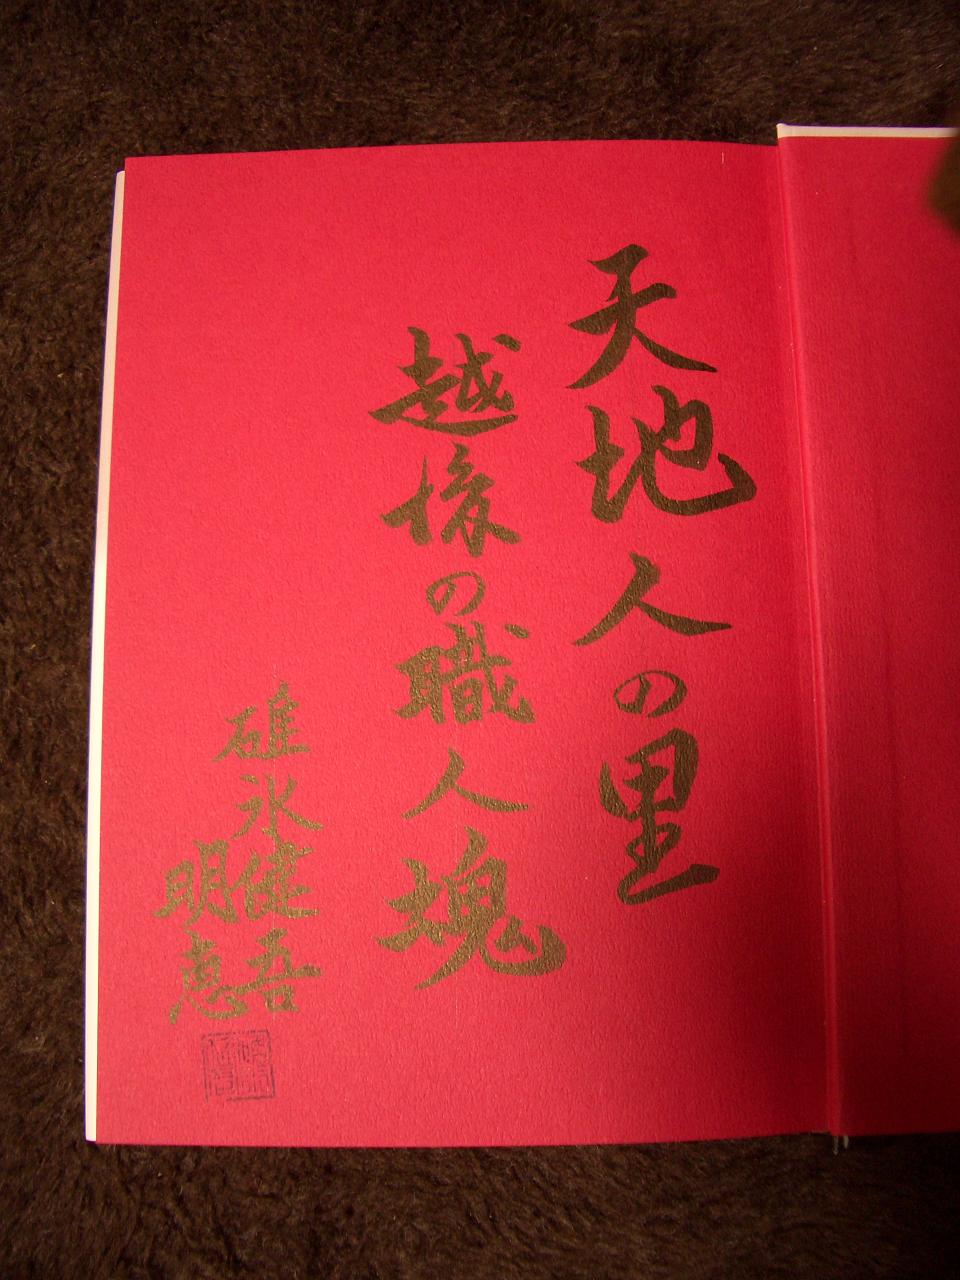 天地人の里
越後の職人魂
碓氷健吾
明恵